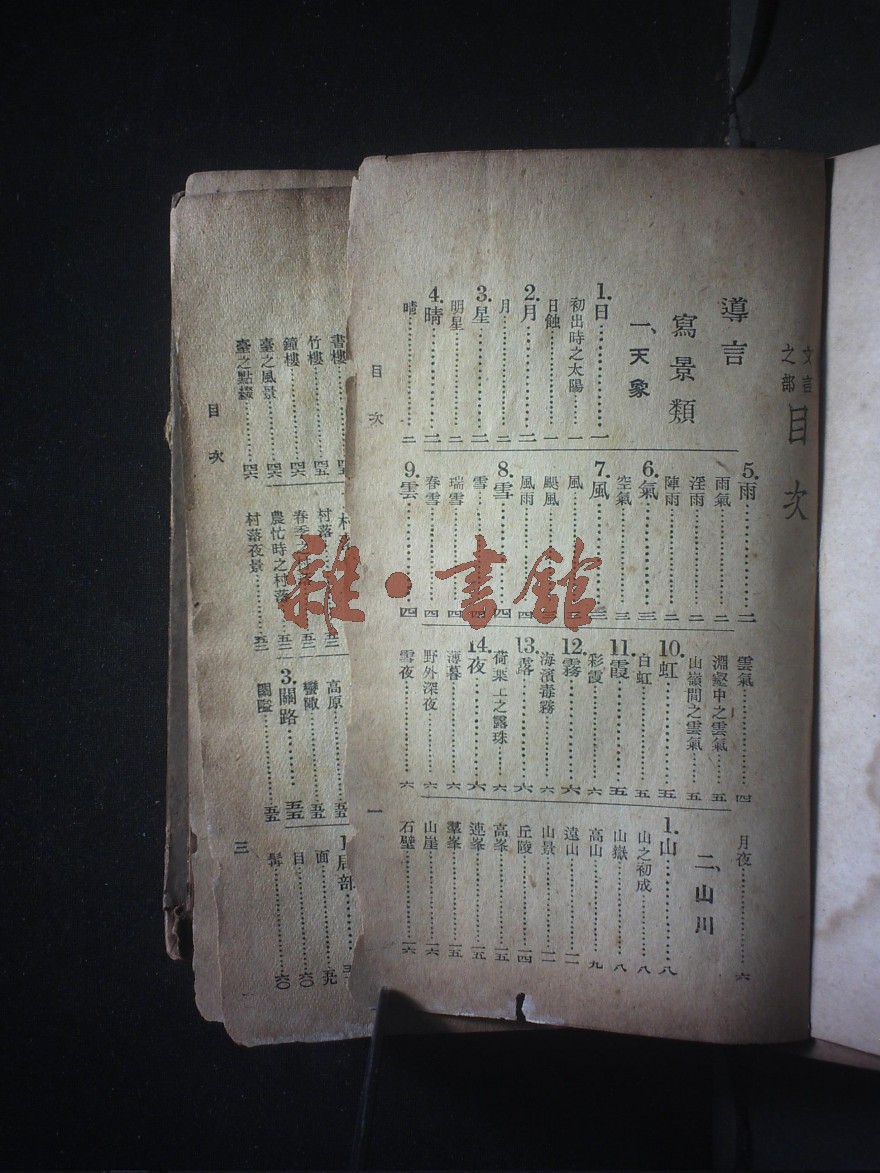 文言之部 目次
導言
寫景類
一、天象
1.日……一
初出時之太陽……一
日蝕……一
2.月……二
月……二
3.星……二
明星……二
4.晴……二
晴……二
5.雨……二
雨氣……二
淫雨……二
陣雨……二
6.氣……三
空氣……三
7.風……三
風
颶風
風雨……四
8.雪……四
雪……四
瑞雪……四
春雪……四
9.雲……四
雲氣……四
淵壑中之雲氣……五
山嶺間之雲氣……五
10.虹……五
白虹……五
11.霞……五
彩霞……六
12.霧……六
海濱毒霧……六
13.露……六
荷葉上之露珠……六
14.夜……六
薄暮……六
野外深夜……六
雪夜……六
月夜……六
二、山川
1.山……八
山之初成……八
山嶽……八
高山……九
遠山……一一
山景……一一
丘陵……一四
高峯……一五
連峯……一五
羣峯……一五
山崖……一六
石壁……一六
目次
一
書樓
竹樓……四五
鐘樓……四六
臺之風景……四六
臺之點綴……四六
村落
春季之村
農忙時之村落……五二
村落夜景……五二
高原
巒陬
3.關路……五五
關隘……五五
1.局部
面……五九
目……六〇
髯……六〇
目次
三
雜·書館